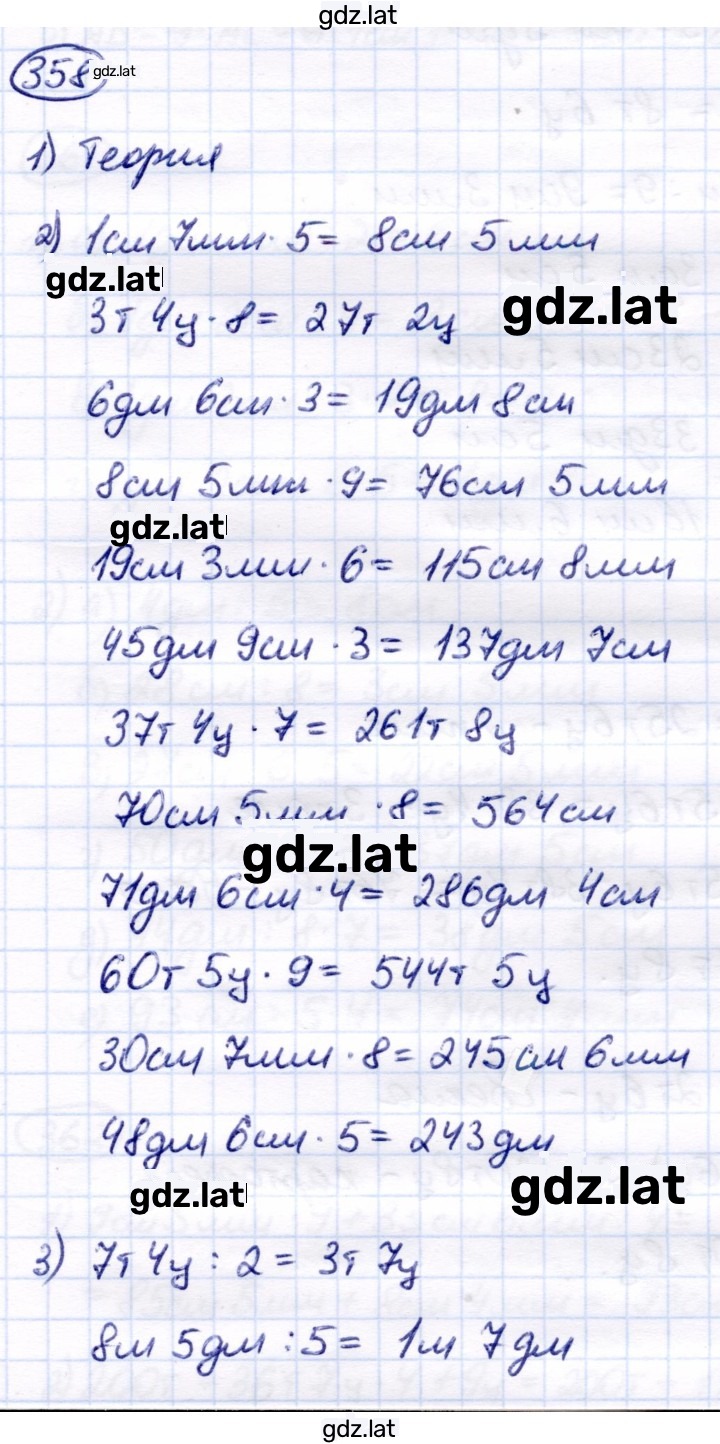 gdz.lat
358 gdz.lat
1) Теория
2) 1см 7мм · 5 = 8см 5мм
gdz.lat
3т 4ц · 8 = 27т 2ц
gdz.lat
6дм 6см · 3 = 19дм 8см
8см 5мм · 9 = 76см 5мм
gdz.lat
19см 3мм · 6 = 115см 8мм
45дм 9см · 3 = 137дм 7см
37т 4ц · 7 = 261т 8ц
70см 5мм · 8 = 564см
gdz.lat
71дм 6см · 4 = 286дм 4см
60т 5ц · 9 = 544т 5ц
30см 7мм · 8 = 245см 6мм
48дм 6см · 5 = 243дм
gdz.lat
gdz.lat
3) 7т 4ц : 2 = 3т 7ц
8м 5дм : 5 = 1м 7дм
gdz.lat